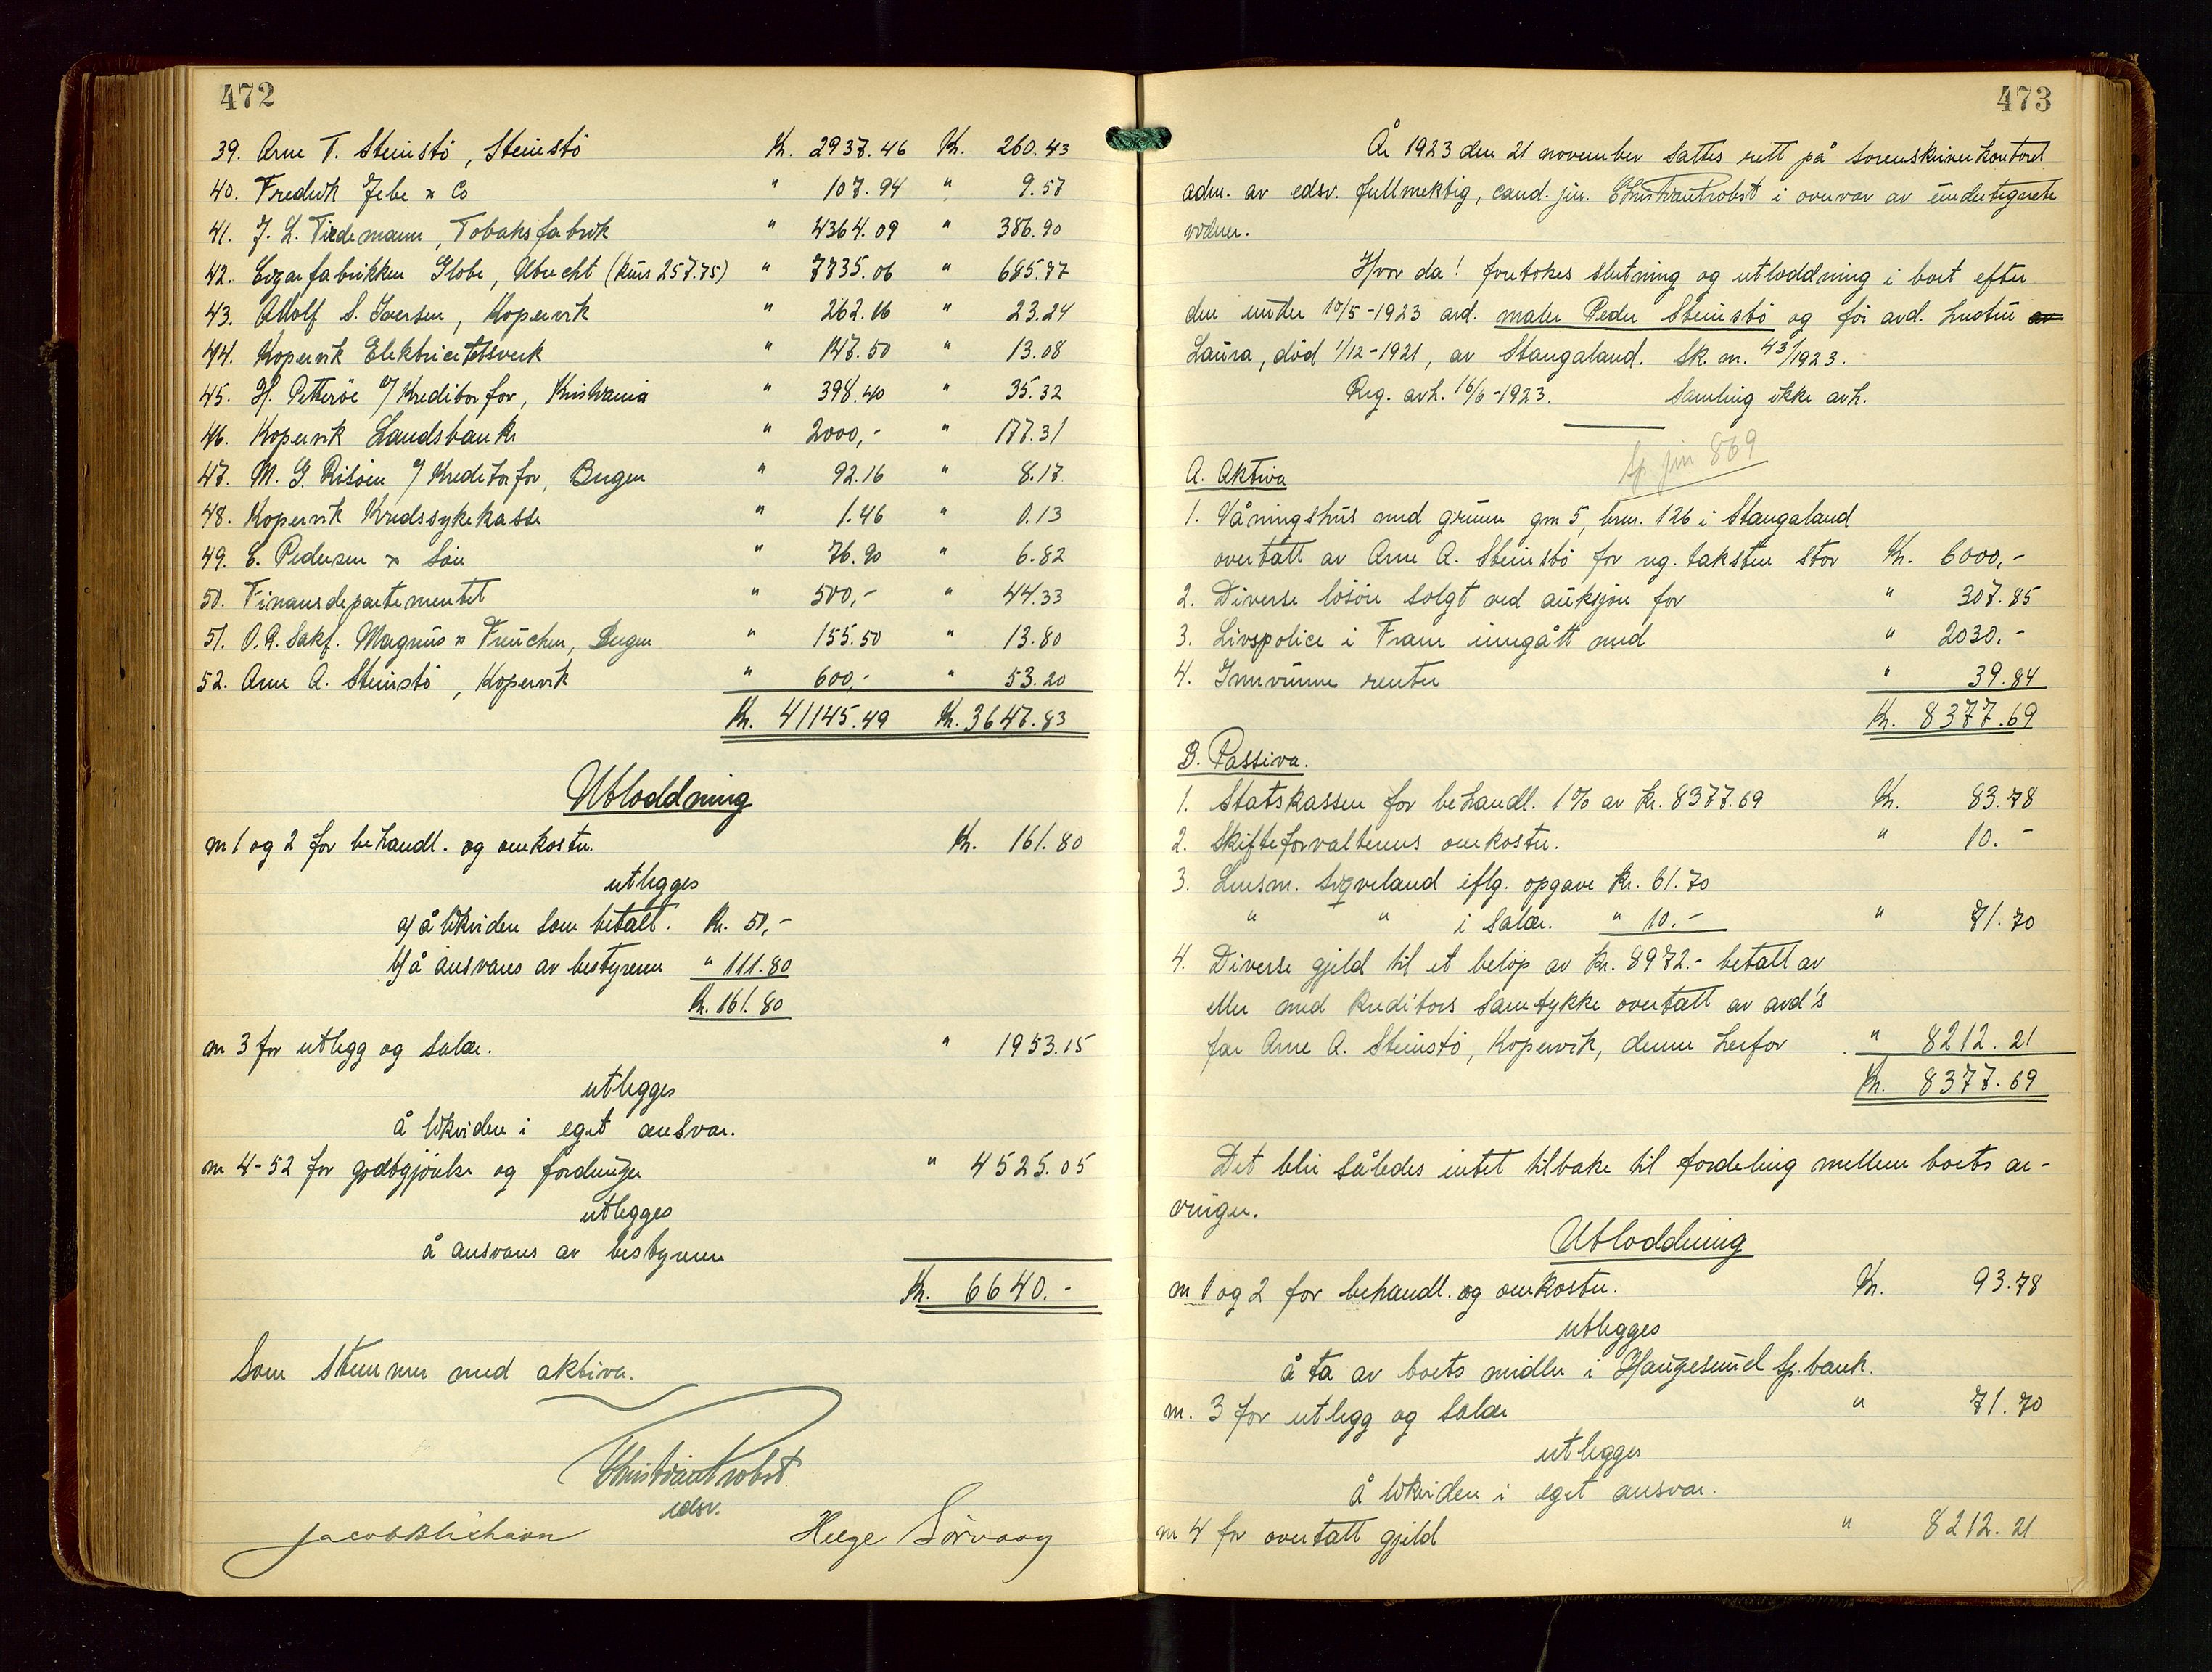 472
39. Arne T. Steinstö, Steinstö Kr. 2937.46 Kr. 260.43
40. Fredrik Jebe & Co " 107.94 " 9.57
41. J. L. Tiedemann, Tobaksfabrik " 4364.09 " 386.90
42. Cigarfabrikken Globe, Utrecht (kurs 257.75) " 7735.06 " 685.77
43. Adolf S. Iversen, Kopervik " 262.16 " 23.24
44. Kopervik Elektricitetsverk " 147.50 " 13.08
45. H. Petteröe v/ Kreditorfor, Kristiania " 398.40 " 35.32
46. Kopervik Landsbank " 2000,- " 177.31
47. M. G. Risöen v/ Kreditorfor, Bergen " 92.16 " 8.17
48. Kopervik Kredssykekasse " 1.46 " 0.13
49. E. Pedersen & Sön " 76.90 " 6.82
50. Finansdepartementet " 500,- " 44.33
51. O.R. Sakf. Magnus & Freuchen, Bergen " 155.50 " 13.80
52. Arne A. Steinstö, Kopervik " 600,- " 53.20
Kr. 41145.49 Kr. 3647.83
Utloddning
nr 1 og 2 for behandl. og omkostn. Kr. 161.80
utlegges
a) å likviden som betalt. Kr. 50,-
b) å ansvars av bestyreren " 111.80
Kr. 161.80
nr 3 for utlegg og salær. " 1953.15
utlegges
å likviden i eget ansvar.
nr 4-52 for godtgjörelse og fordringer " 4525.05
utlegges
å ansvars av bestyreren
Kr. 6640.-
Som stemmer med aktiva.
Christian Probst
edsv.
Helge Sörvaag
473
År 1923 den 21 november sattes rett på sorenskriverkontoret
adm. av edsv. fullmektig, cand. jur. Christian Probst i overvær av undertegnete
vidner.
Hvor da! foretokes slutning og utloddning i boet efter
den under 10/5-1923 avd. maler Peder Steinstö og för avd. hustru av
Laura, död 1/12-1921, av Stangaland. Sk. nr. 43/1923.
Reg. avh. 16/6-1923. Samling ikke avh.
869
A. Aktiva
1. Våningshus med grunn gnr 5, brnr. 126 i Stangaland
overtatt av Arne A. Steinstö for reg. taksten stor Kr. 6000,-
2. Diverse lösöre solgt ved auksjon for " 307.85
3. Livspolice i Fram inngått med " 2030.-
4. Innvunne renter " 39.84
Kr. 8377.69
B. Passiva.
1. Statskassen for behandl. 1% av kr. 8377.69 Kr. 83.78
2. Skifteforvalterens omkostn. " 10.-
3. Lensm. Sigveland iflg. opgave kr. 61.70
" " i salær. " 10.- " 71.70
4. Diverse gjeld til et belöp av kr. 8972.- betalt av
eller med kreditors samtykke overtatt av avd's
far Arne A. Steinstö, Kopervik, denne herfor " 8212.21
Kr. 8377.69
Det blir således intet tilbake til fordeling mellem boets ar-
vinger.
Utloddning
nr 1 og 2 for behandl. og omkostn. Kr. 93.78
utlegges
å ta av boets midler i Haugesund Sp.bank.
nr. 3 for utlegg og salær " 71.70
utlegges
å likviden i eget ansvar.
nr 4 for overtatt gjeld " 8212.21